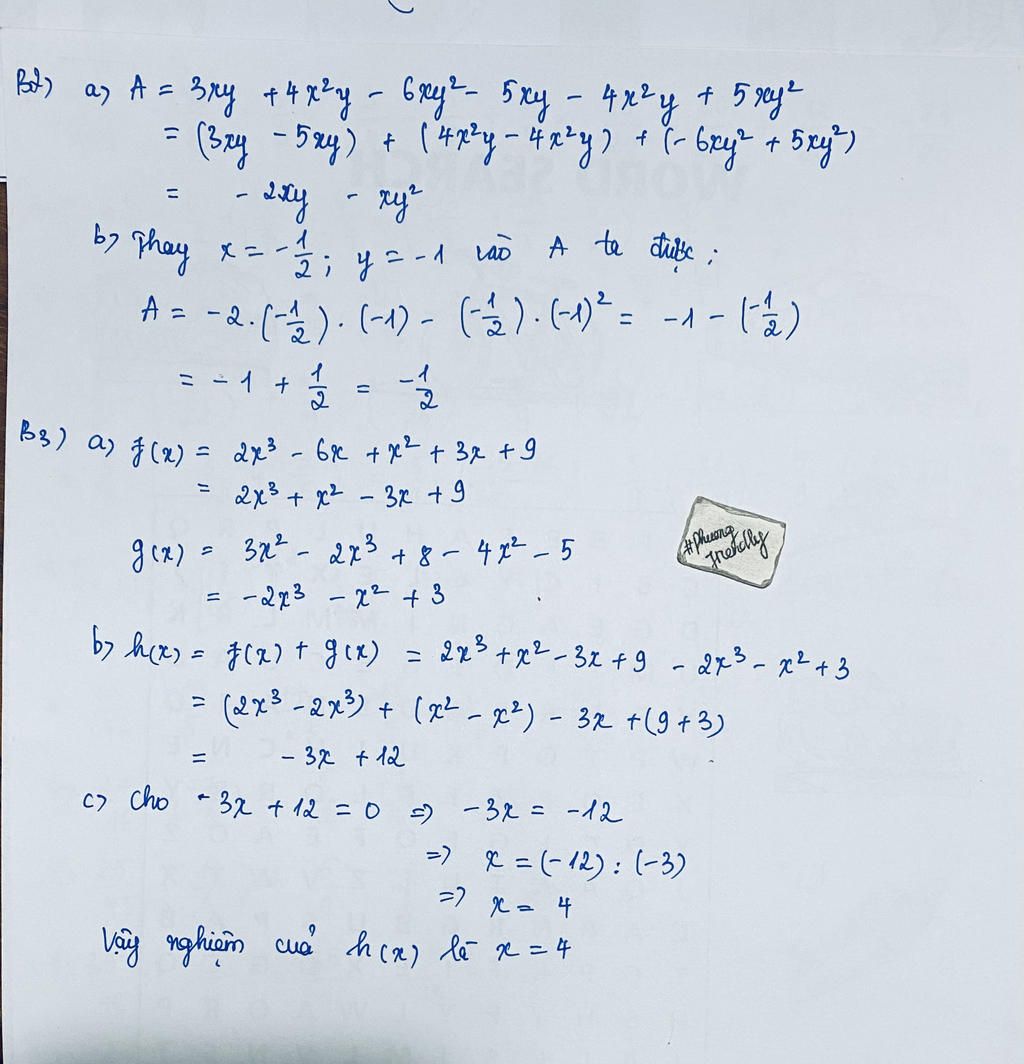 B2) a) A = 3xy + 4x²y - 6xy² - 5xy - 4x²y + 5xy²
= (3xy - 5xy) + (4x²y - 4x²y) + (-6xy² + 5xy²)
= - 2xy - xy²
b) Thay x = -1/2 ; y = -1 vào A ta được :
A = -2.(-1/2).(-1) - (-1/2).(-1)² = -1 - (-1/2)
= -1 + 1/2 = -1/2
B3) a) f(x) = 2x³ - 6x + x² + 3x + 9
= 2x³ + x² - 3x + 9
g(x) = 3x² - 2x³ + 8 - 4x² - 5
= -2x³ - x² + 3
#Phuong friendly
b) h(x) = f(x) + g(x) = 2x³ + x² - 3x + 9 - 2x³ - x² + 3
= (2x³ - 2x³) + (x² - x²) - 3x + (9 + 3)
= - 3x + 12
c) Cho -3x + 12 = 0 => -3x = -12
=> x = (-12) : (-3)
=> x = 4
Vậy nghiệm cuả h(x) là x = 4